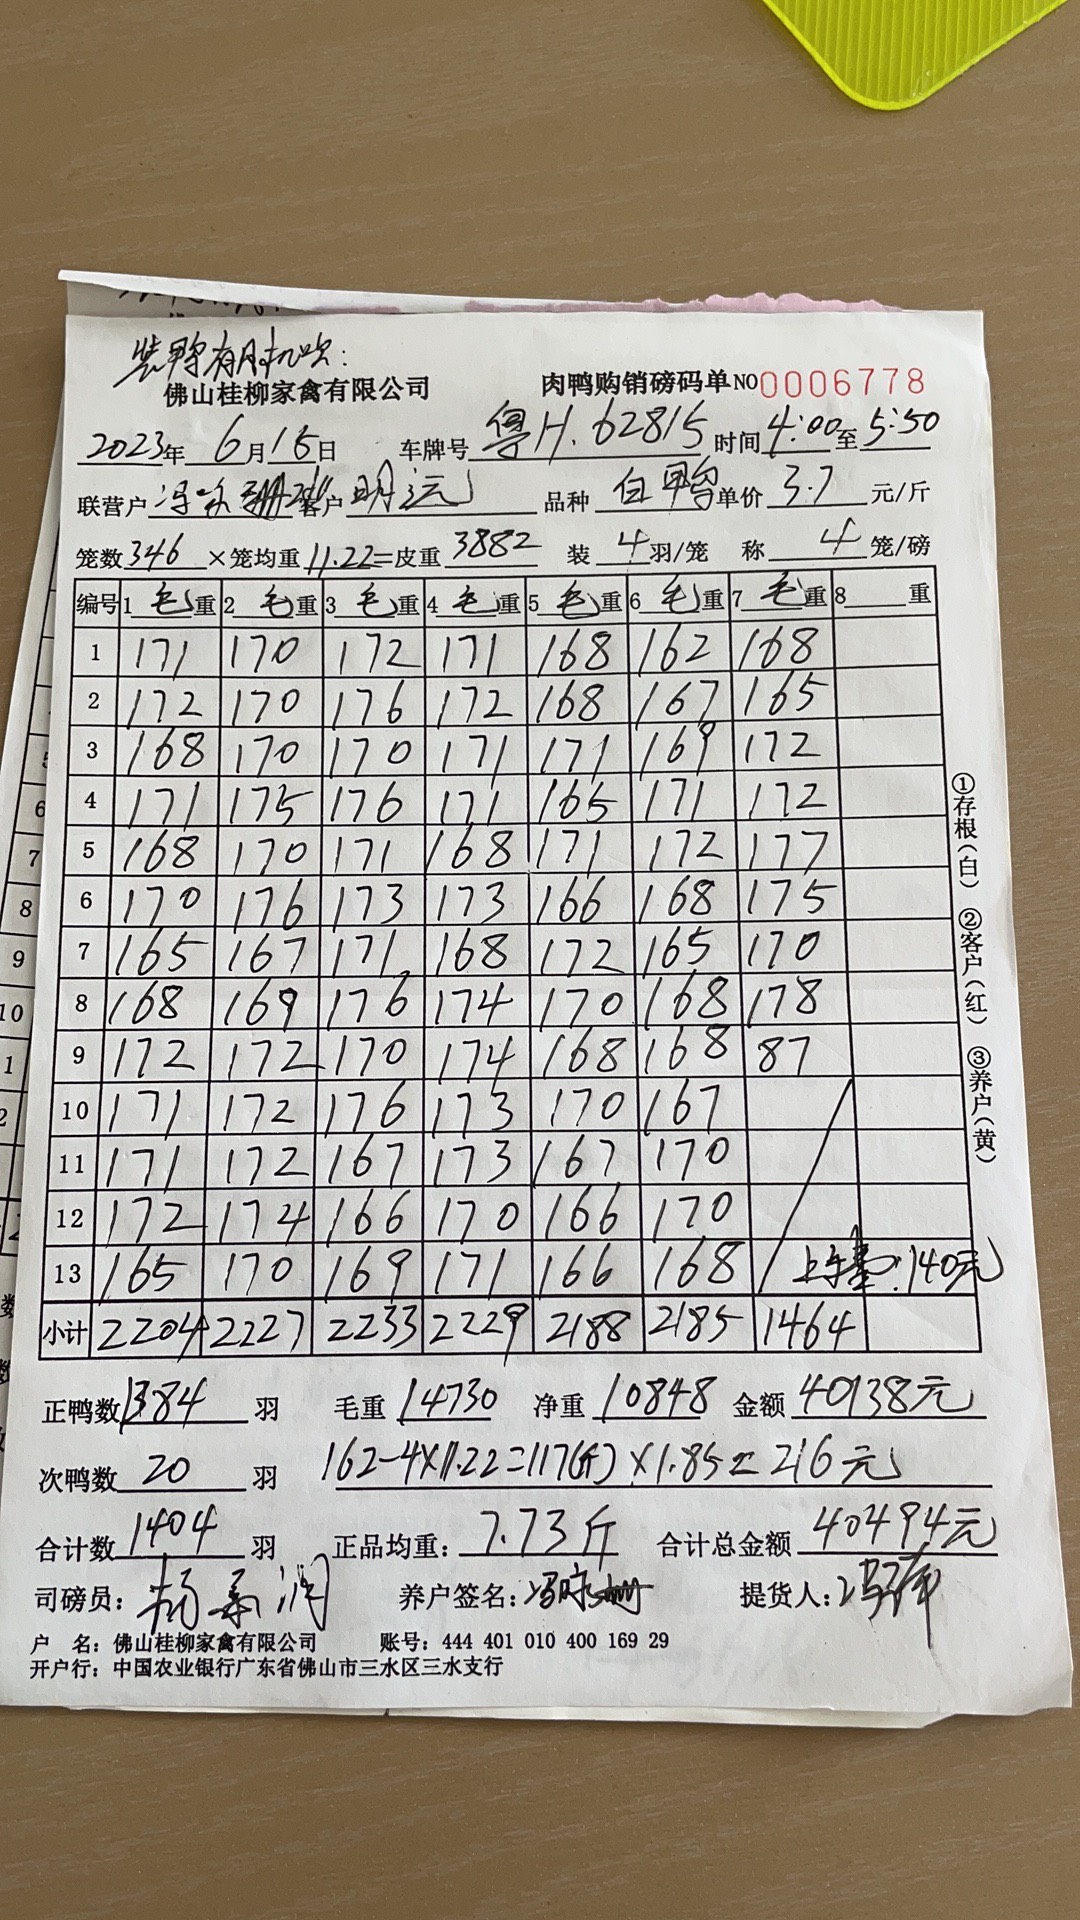 装鸭有用机吹:
佛山桂柳家禽有限公司 肉鸭购销磅码单 NO 0006778
2023年 6月15日 车牌号 粤H.62815 时间 4:00至5:50
联营户 客户 明远 品种 白鸭 单价 3.7 元/斤
笼数 346 ×笼均重 11.22=皮重 3882 装 4 羽/笼 称 4 笼/磅
编号 1 毛 重 2 毛 重 3 毛 重 4 毛 重 5 毛 重 6 毛 重 7 毛 重 8 重
1 171 170 172 171 168 162 168
2 172 170 176 172 168 167 165
3 168 170 170 171 171 169 172
4 171 175 176 171 165 171 172
5 168 170 171 168 171 172 177
6 170 176 173 173 166 168 175
7 165 167 171 168 172 165 170
8 168 169 176 174 170 168 178
9 172 172 170 174 168 168 87
10 171 172 176 173 170 167
11 171 172 167 173 167 170
12 172 174 166 170 166 170
13 165 170 169 171 166 168 140元
小计 2204 2227 2233 2229 2188 2185 1464
正鸭数 1384 羽 毛重 14730 净重 10848 金额 40138元
次鸭数 20 羽 162-4×11.22=117(斤)×1.85=216元
合计数 1404 羽 正品均重: 7.73斤 合计总金额 40494元
司磅员: 养户签名: 提货人:
户 名: 佛山桂柳家禽有限公司 账号: 444 401 010 400 169 29
开户行: 中国农业银行广东省佛山市三水区三水支行
①存根(白) ②客户(红) ③养户(黄)